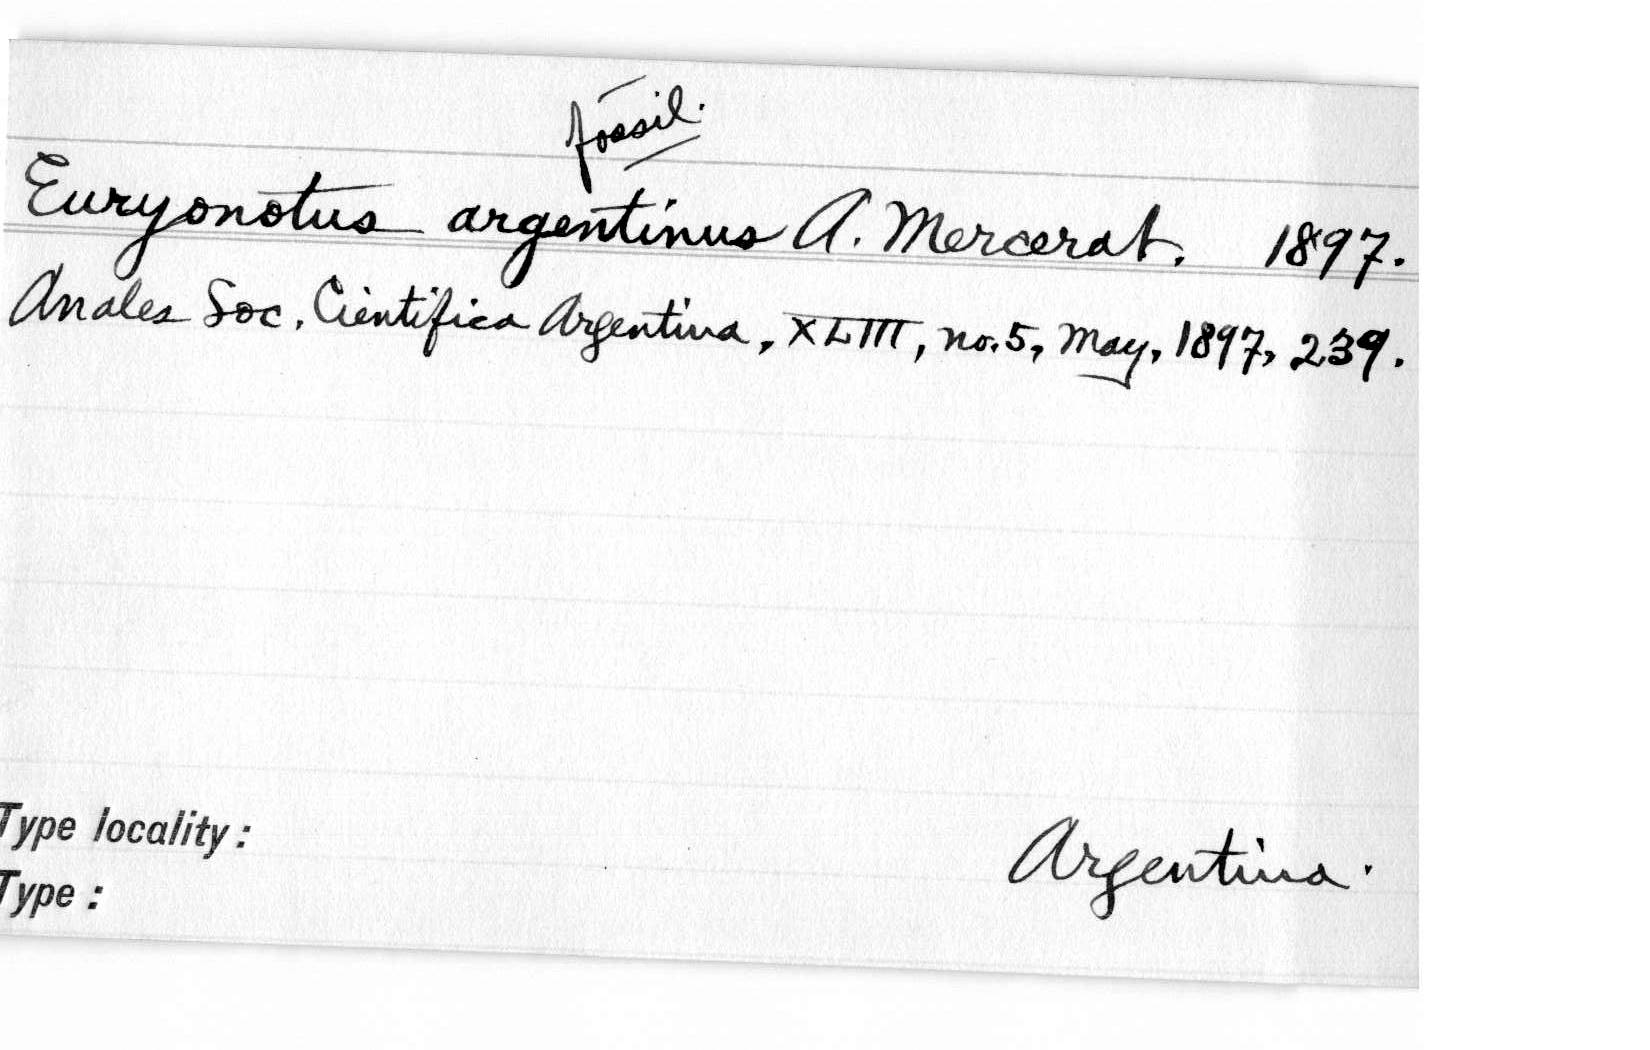 fossil.
Euryonotus argentinus A. Mercerat. 1897.
Anales Soc. Científica Argentina, XLIII, no. 5, May, 1897, 239.
Type locality: Argentina.
Type: